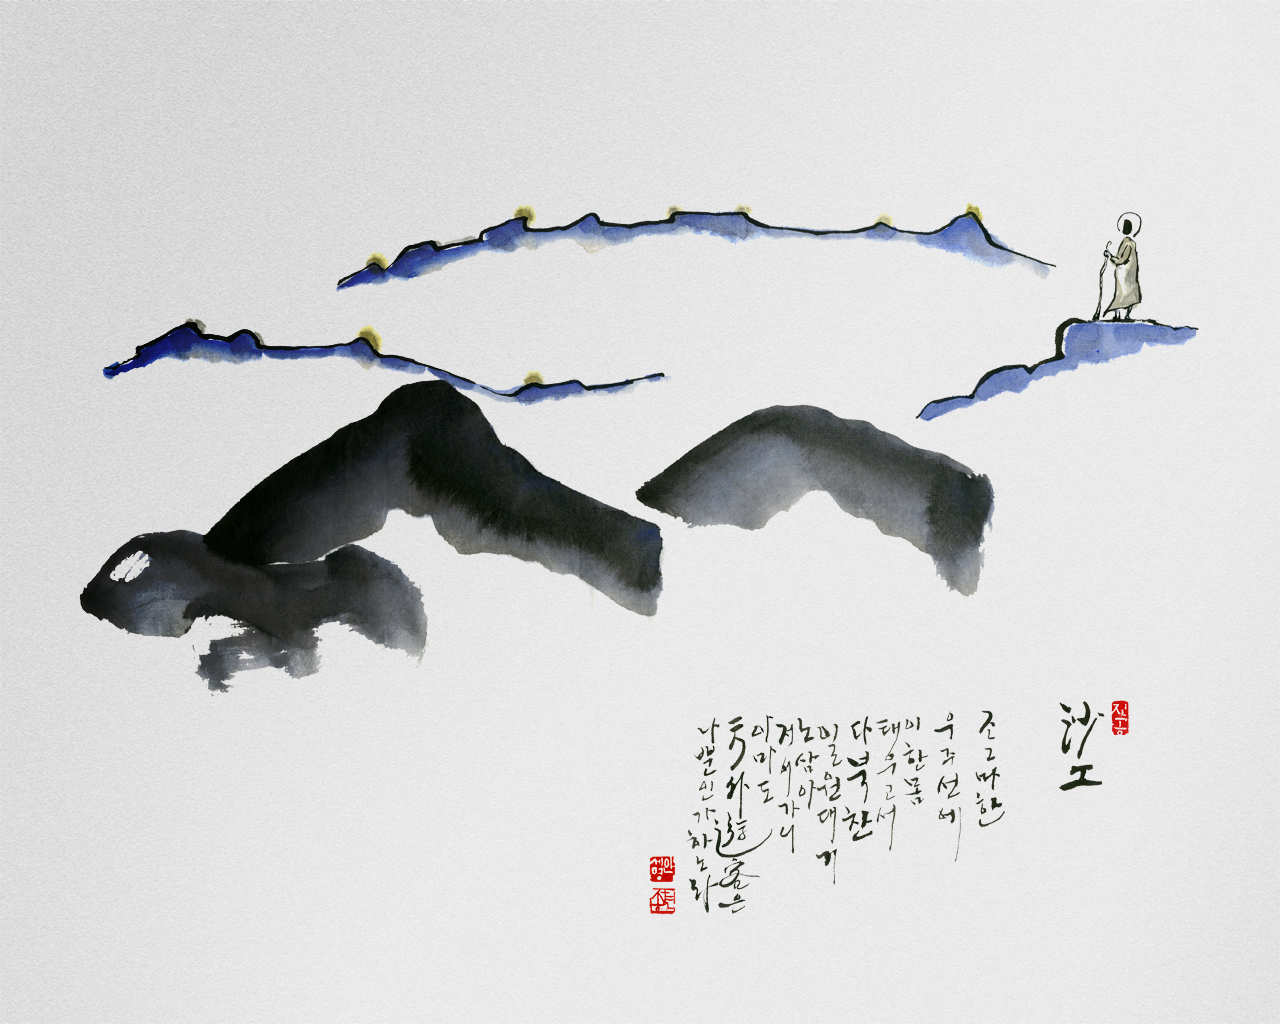 진공
沙工
조그마한
우주선에
이 한 몸
태우고서
다북찬
일원대기
노삼아
저어가니
아마도
方外遊客은
나뿐인가 하노라